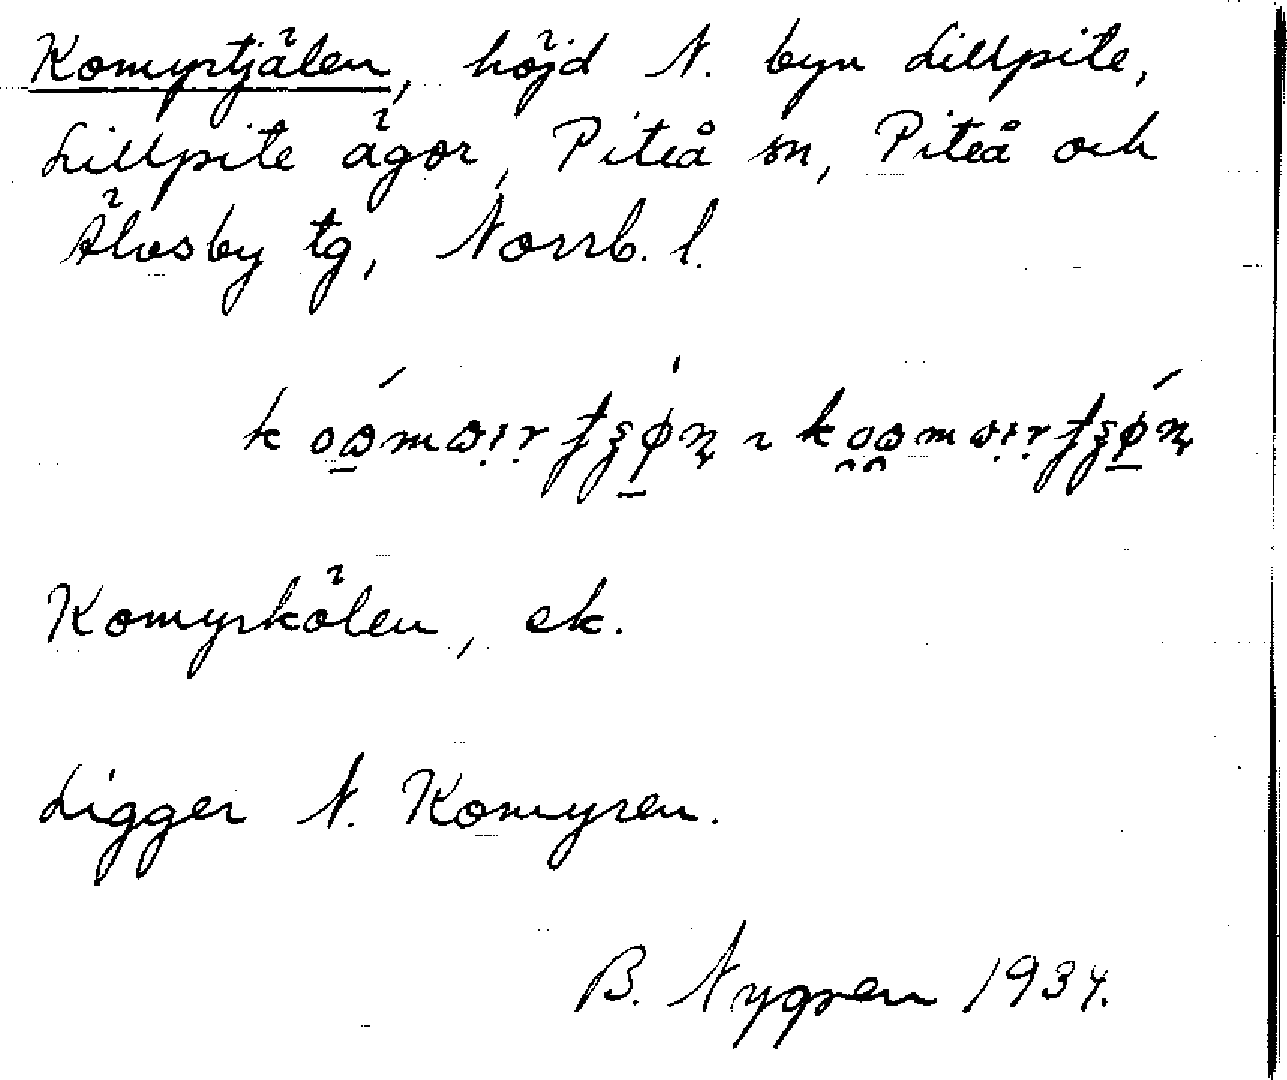 Komyrtjälen, höjd N. byn Lillpite,
Lillpite ägor, Piteå sn, Piteå och
Älvsby tg, Norrb. l.
Komyrkölen, ek.
Ligger N. Komyren.
B. Nygren 1934.